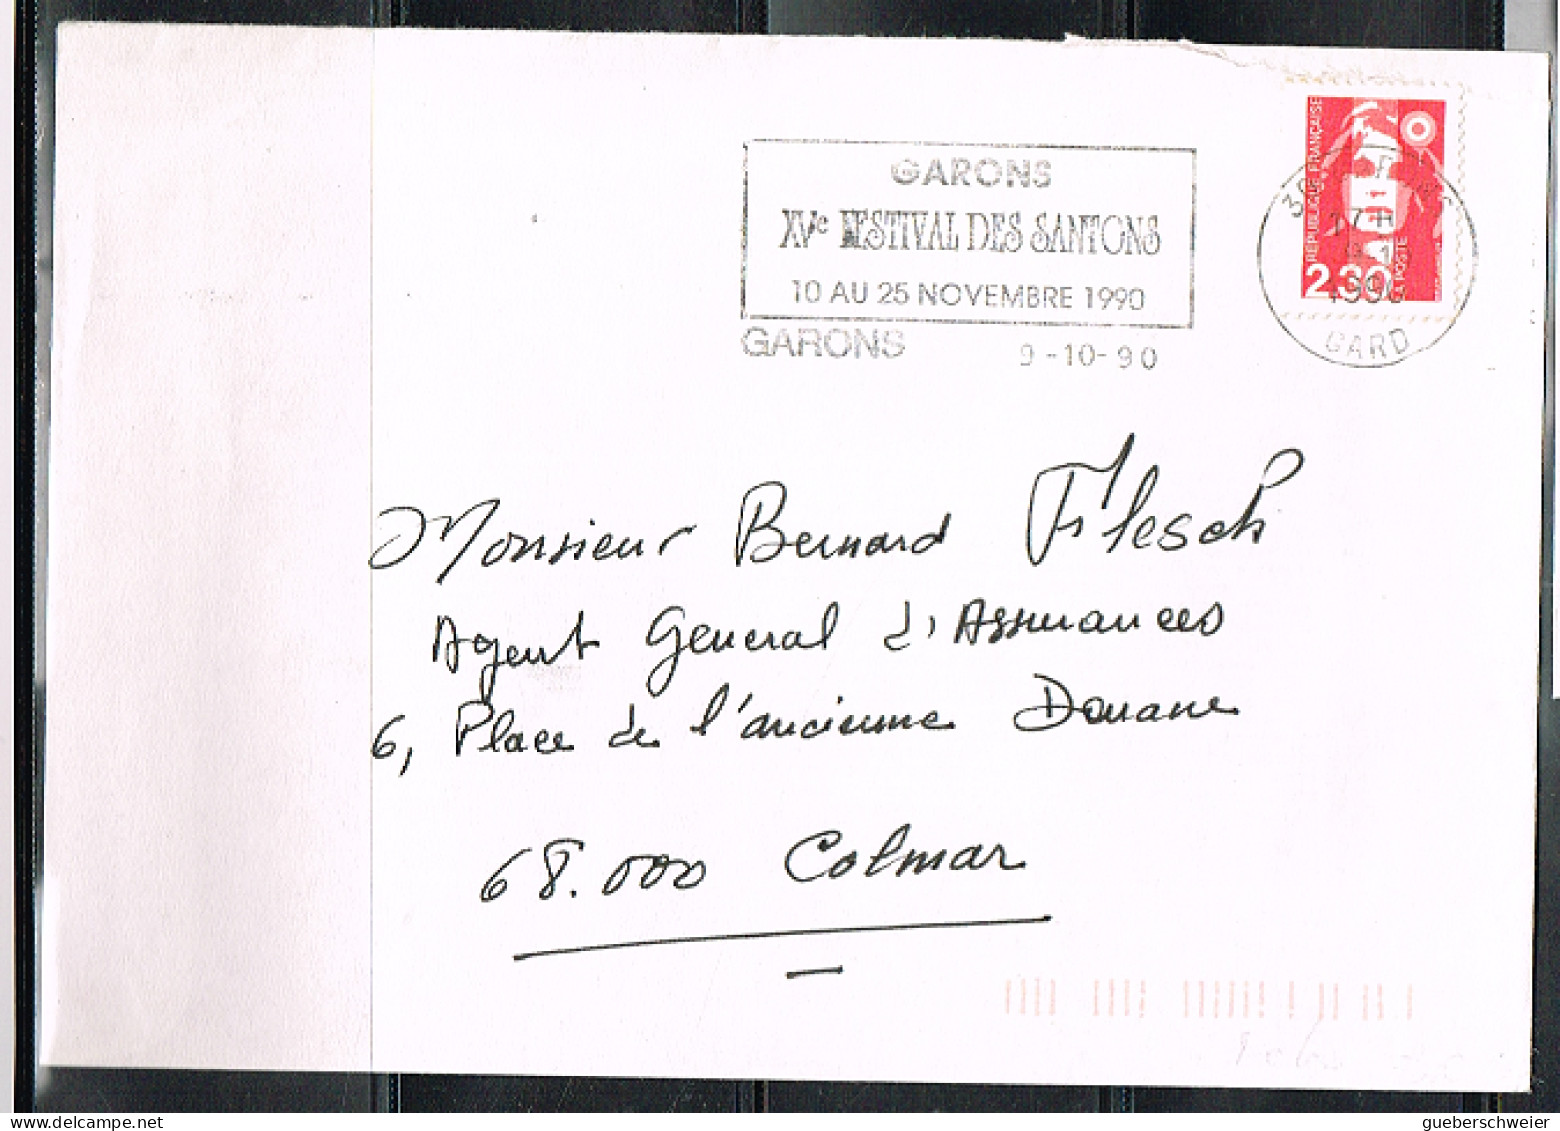 GARONS
XVe FESTIVAL DES SANTONS
10 AU 25 NOVEMBRE 1990
GARONS 9-10-90
RÉPUBLIQUE FRANÇAISE
2.30
LA POSTE
17 H
1990
GARD
Monsieur Bernard Flesch
Agent General d'Assurances
6, Place de l'ancienne Douane
68.000 Colmar
gueberschweier